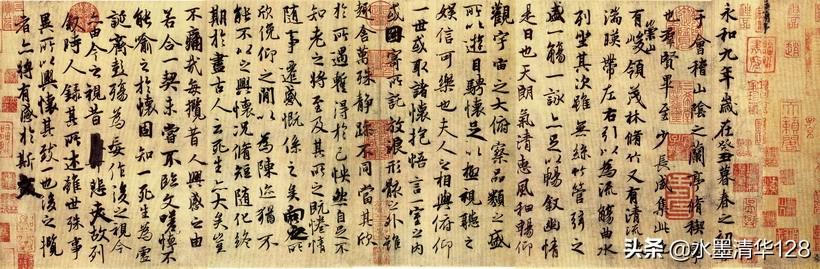 永和九年歲在癸丑暮春之初
于會稽山陰之蘭亭脩稧事
也群賢畢至少長咸集此
崇山
有峻領茂林脩竹又有清流
湍暎帶左右引以為流觴曲水
列坐其次雖無絲竹管弦之
盛一觴一詠亦足以暢敘幽情
是日也天朗氣清惠風和暢仰
觀宇宙之大俯察品類之盛
所以遊目騁懷足以極視聽之
娛信可樂也夫人之相與俯仰
一世或取諸懷抱悟言一室之內
或因寄所託放浪形骸之外雖
趣舍萬殊靜躁不同當其欣
於所遇蹔得於己怏然自足不
知老之將至及其所之既惓情
隨事遷感慨係之矣向之所
欣俛仰之閒以為陳迹猶不
能不以之興懷況脩短隨化終
期於盡古人云死生亦大矣豈
不痛哉每攬昔人興感之由
若合一契未嘗不臨文嗟悼不
能喻之於懷固知一死生為虛
誕齊彭殤為妄作後之視今
亦由今之視昔悲夫故列
敘時人錄其所述雖世殊事
異所以興懷其致一也後之攬
者亦將有感於斯文
头条 @水墨清华128